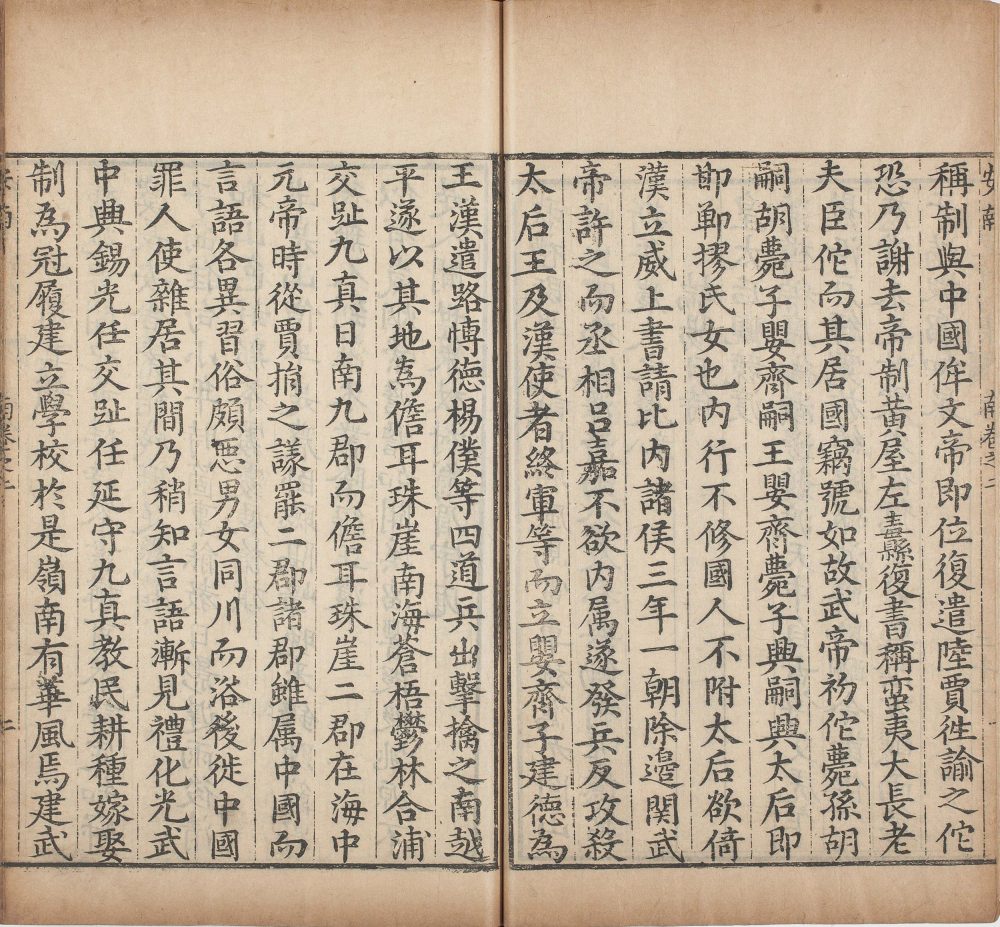 安南
南卷之二
稱制與中國侔文帝即位復遣陸賈徃諭之佗
恐乃謝去帝制黃屋左纛縣復書稱蛮夷大長老
夫臣佗而其居國竊號如故武帝初佗薨孫胡
嗣胡薨子嬰齊嗣王嬰齊薨子興嗣興太后即
邯鄲摎氏女也内行不修國人不附太后欲倚
漢立威上書請比内諸侯三年一朝除邊関武
帝許之而丞相吕嘉不欲内属遂發兵反攻殺
太后王及漢使者終軍等而立嬰齊子建德為
王漢遣路博德楊僕等四道兵出擊擒之南越
平遂以其地為儋耳珠崖南海蒼梧鬱林合浦
交趾九真日南九郡而儋耳珠崖二郡在海中
元帝時從賈捐之議罷二郡諸郡雖属中國而
言語各異習俗頗惡男女同川而浴後徙中國
罪人使雜居其間乃稍知言語漸見禮化光武
中興錫光任交趾任延守九真教民耕種嫁娶
制為冠履建立學校於是嶺南有華風焉建武